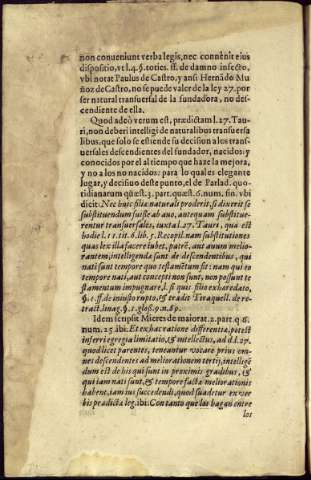 non conueniunt verba legis, nec conuenit eius
dispositio, vt l. 4. §. toties. ff. de damno infecto,
vbi notat Paulus de Castro, y ansi Hernãdo Mu
ñoz de Castro, no se puede valer de la ley 27. por
ser natural transuersal de la fundadora, no des-
cendiente de ella.
Quod adeò verum est, prædictam l. 27. Tau-
ri, non deberi intelligi de naturalibus transuersa
libus: que solo se estiende su decision a los trans
uersales descendientes del fundador, nacidos: y
conocidos por el al tiempo que haze la mejora,
y no a los no nacidos: para lo qual es elegante
lugar, y decisiuo deste punto, el de Parlad. quo-
tidianarum quæst. 2. part. quæst. 6. num. fin. vbi
dicit: Nec huic filio naturali proderit, si dixerit se
substituendum fuisse ab auo, antequam substitue-
rentur transuersales, iuxta l. 27. Tauri, quæ est
hodie l. 11. tit. 6. lib. 5. Recopil. nam substitutiones
quas lex illa facere iubet, patrẽ, aut auum melio-
rantem, intelligenda sunt de descendentibus, qui
nati sunt tempore quo testamẽtum fit: nam qui eo
tempore nati, aut concepti non sunt, non possunt te
stamentum impugnare, l. si quis filio exhæredato,
§. 1. ff. de iniusto rupto, & tradit Tiraquell. de re-
tract. linag. §. 1. glos. 9. n. 89.
Idem scripsit Mieres de maiorat. 2. part. q. 6.
num. 25. ibi: Et ex hac ratione differentiæ, potest
inferri egregia limitatio, & intellectus, ad d. l. 27.
quod licet parentes, teneantur vocare prius om-
nes descendentes ad meliorationem tertij, intellige
dum est de his qui sunt in proximis gradibus, &
qui iam nati sunt, & tempore factæ meliorationis
habent, iam ius succedendi, quod suadetur ex ver
bis prædictæ leg. ibi: Con tanto que los hagan entre
los